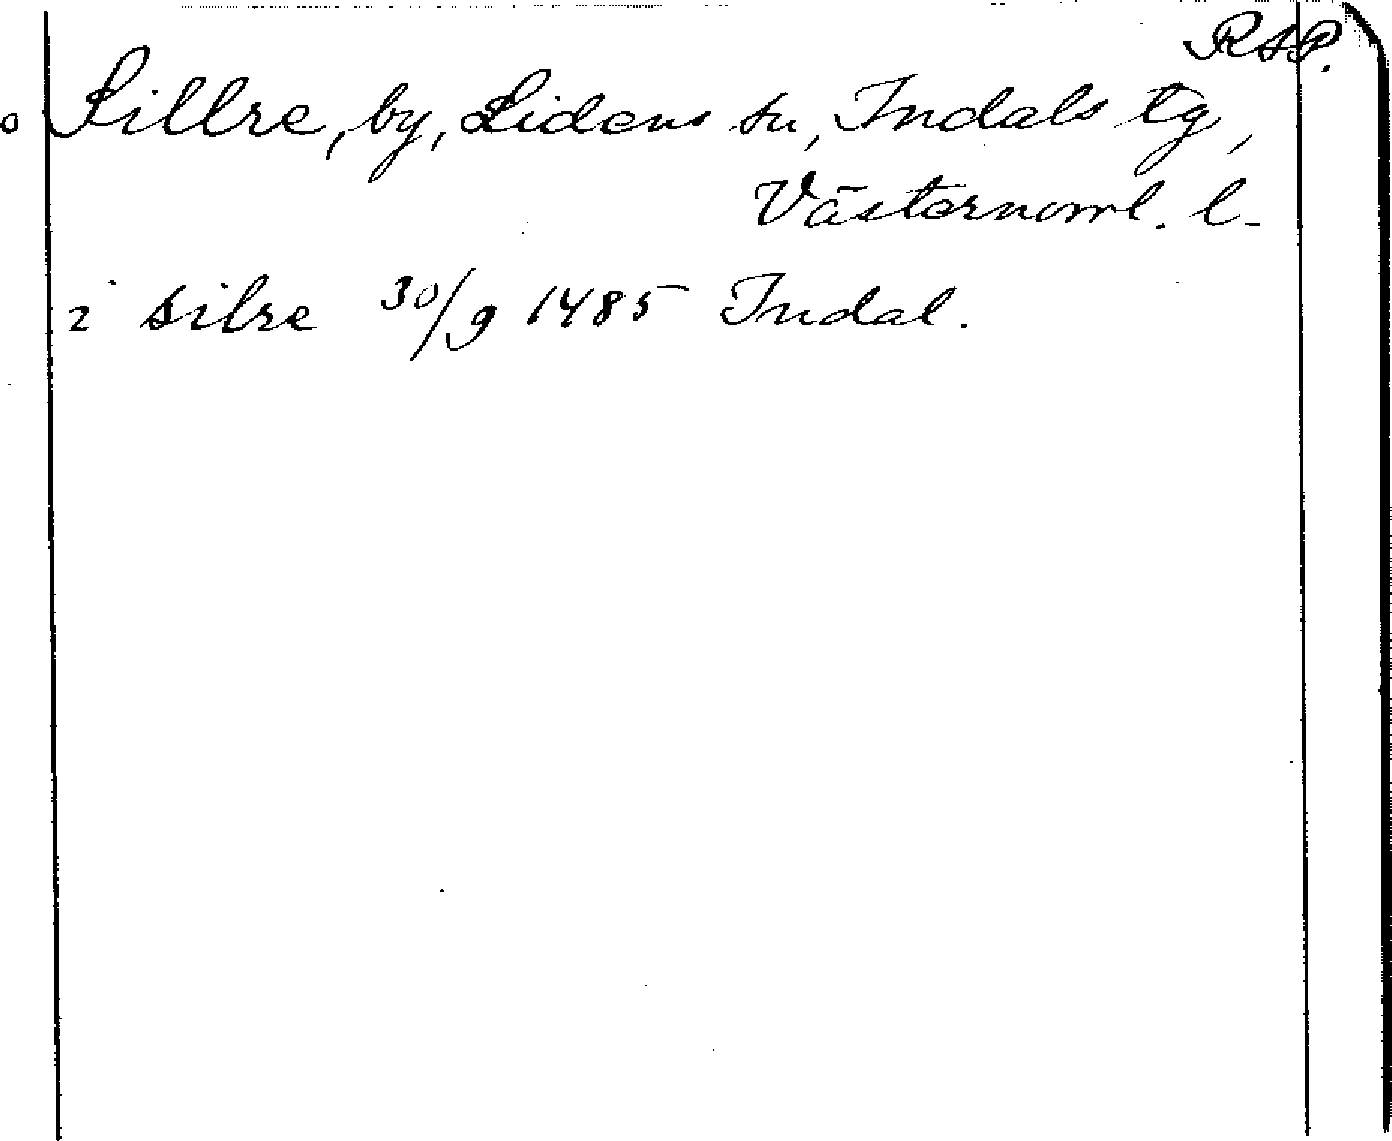 RAP.
o Sillre, by, Lidens sn, Indals tg,
Västernorrl. l.
i silre 30/9 1485 Indal.